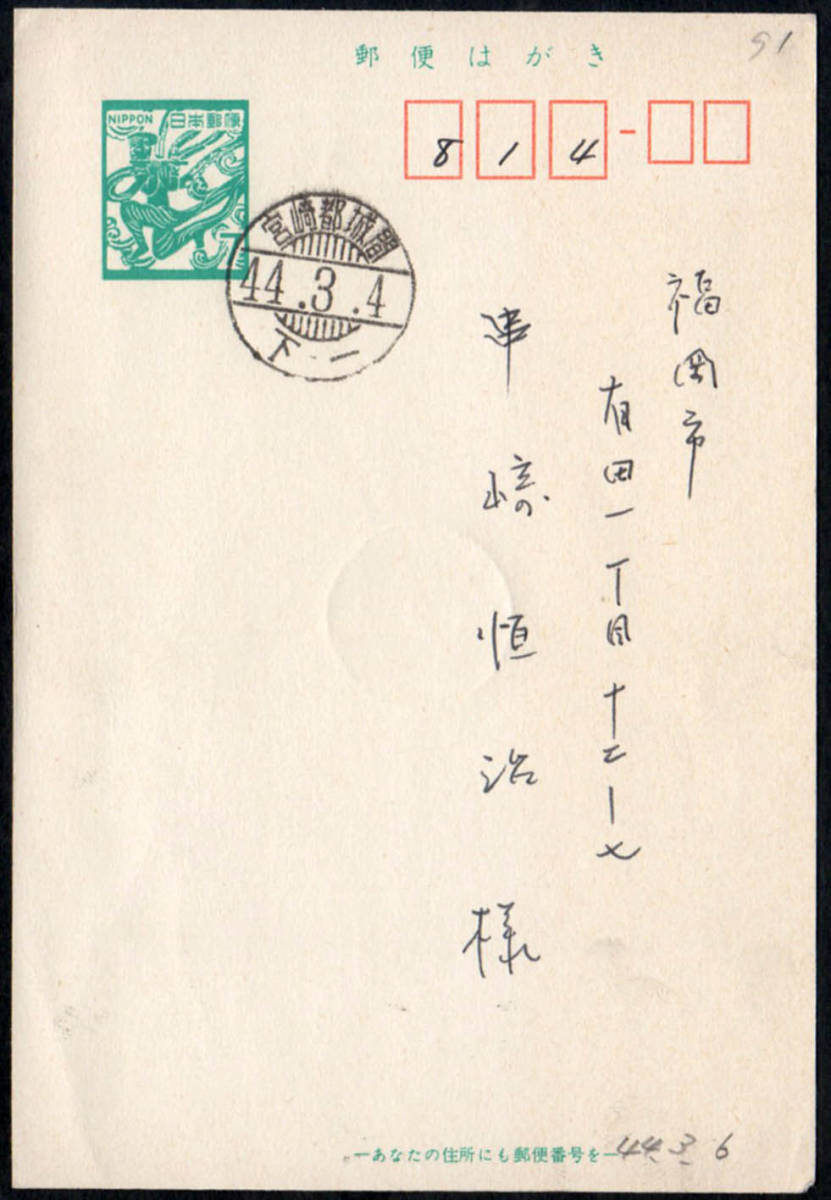 郵便はがき
91
NIPPON 日本郵便
7
814
宮崎都城局
44.3.4
下一
福岡市
有田一丁目十二ー七
串崎恒治様
ーあなたの住所にも郵便番号をー
44.3.6